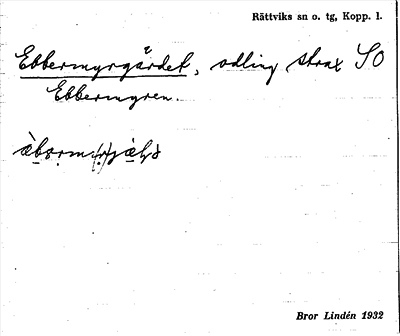 Rättviks sn o. tg, Kopp. l.
Ebbermyrgårdet, odling strax SO
Ebbermyren.
Bror Lindén 1932